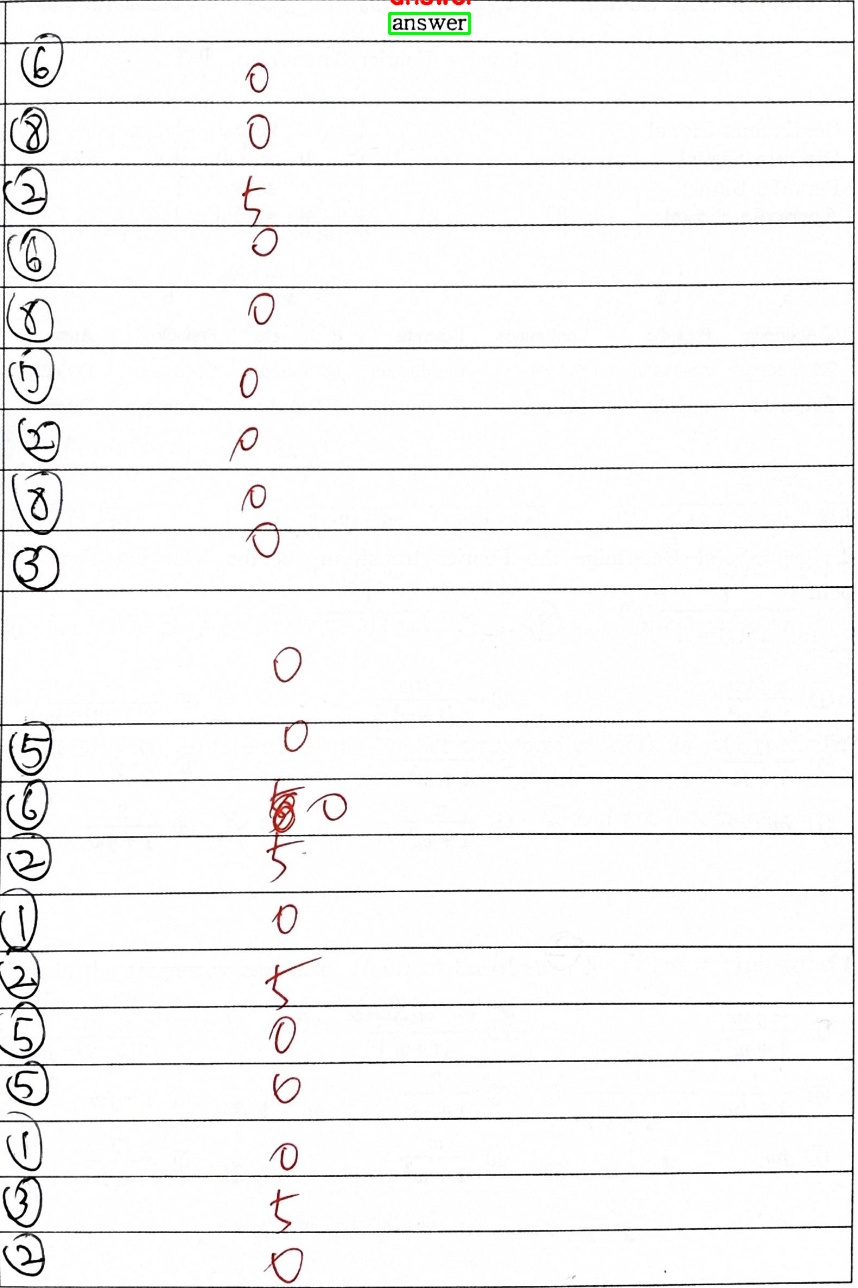 answer
answer
⑥ 0
⑧ 0
② 5
⑥ 0
⑧ 0
⑤ 0
② 0
⑧ 0
③ 0
0
⑤ 0
⑥ 0
② 5
① 0
② 5
⑤ 0
⑤ 0
① 0
③ 5
② 0